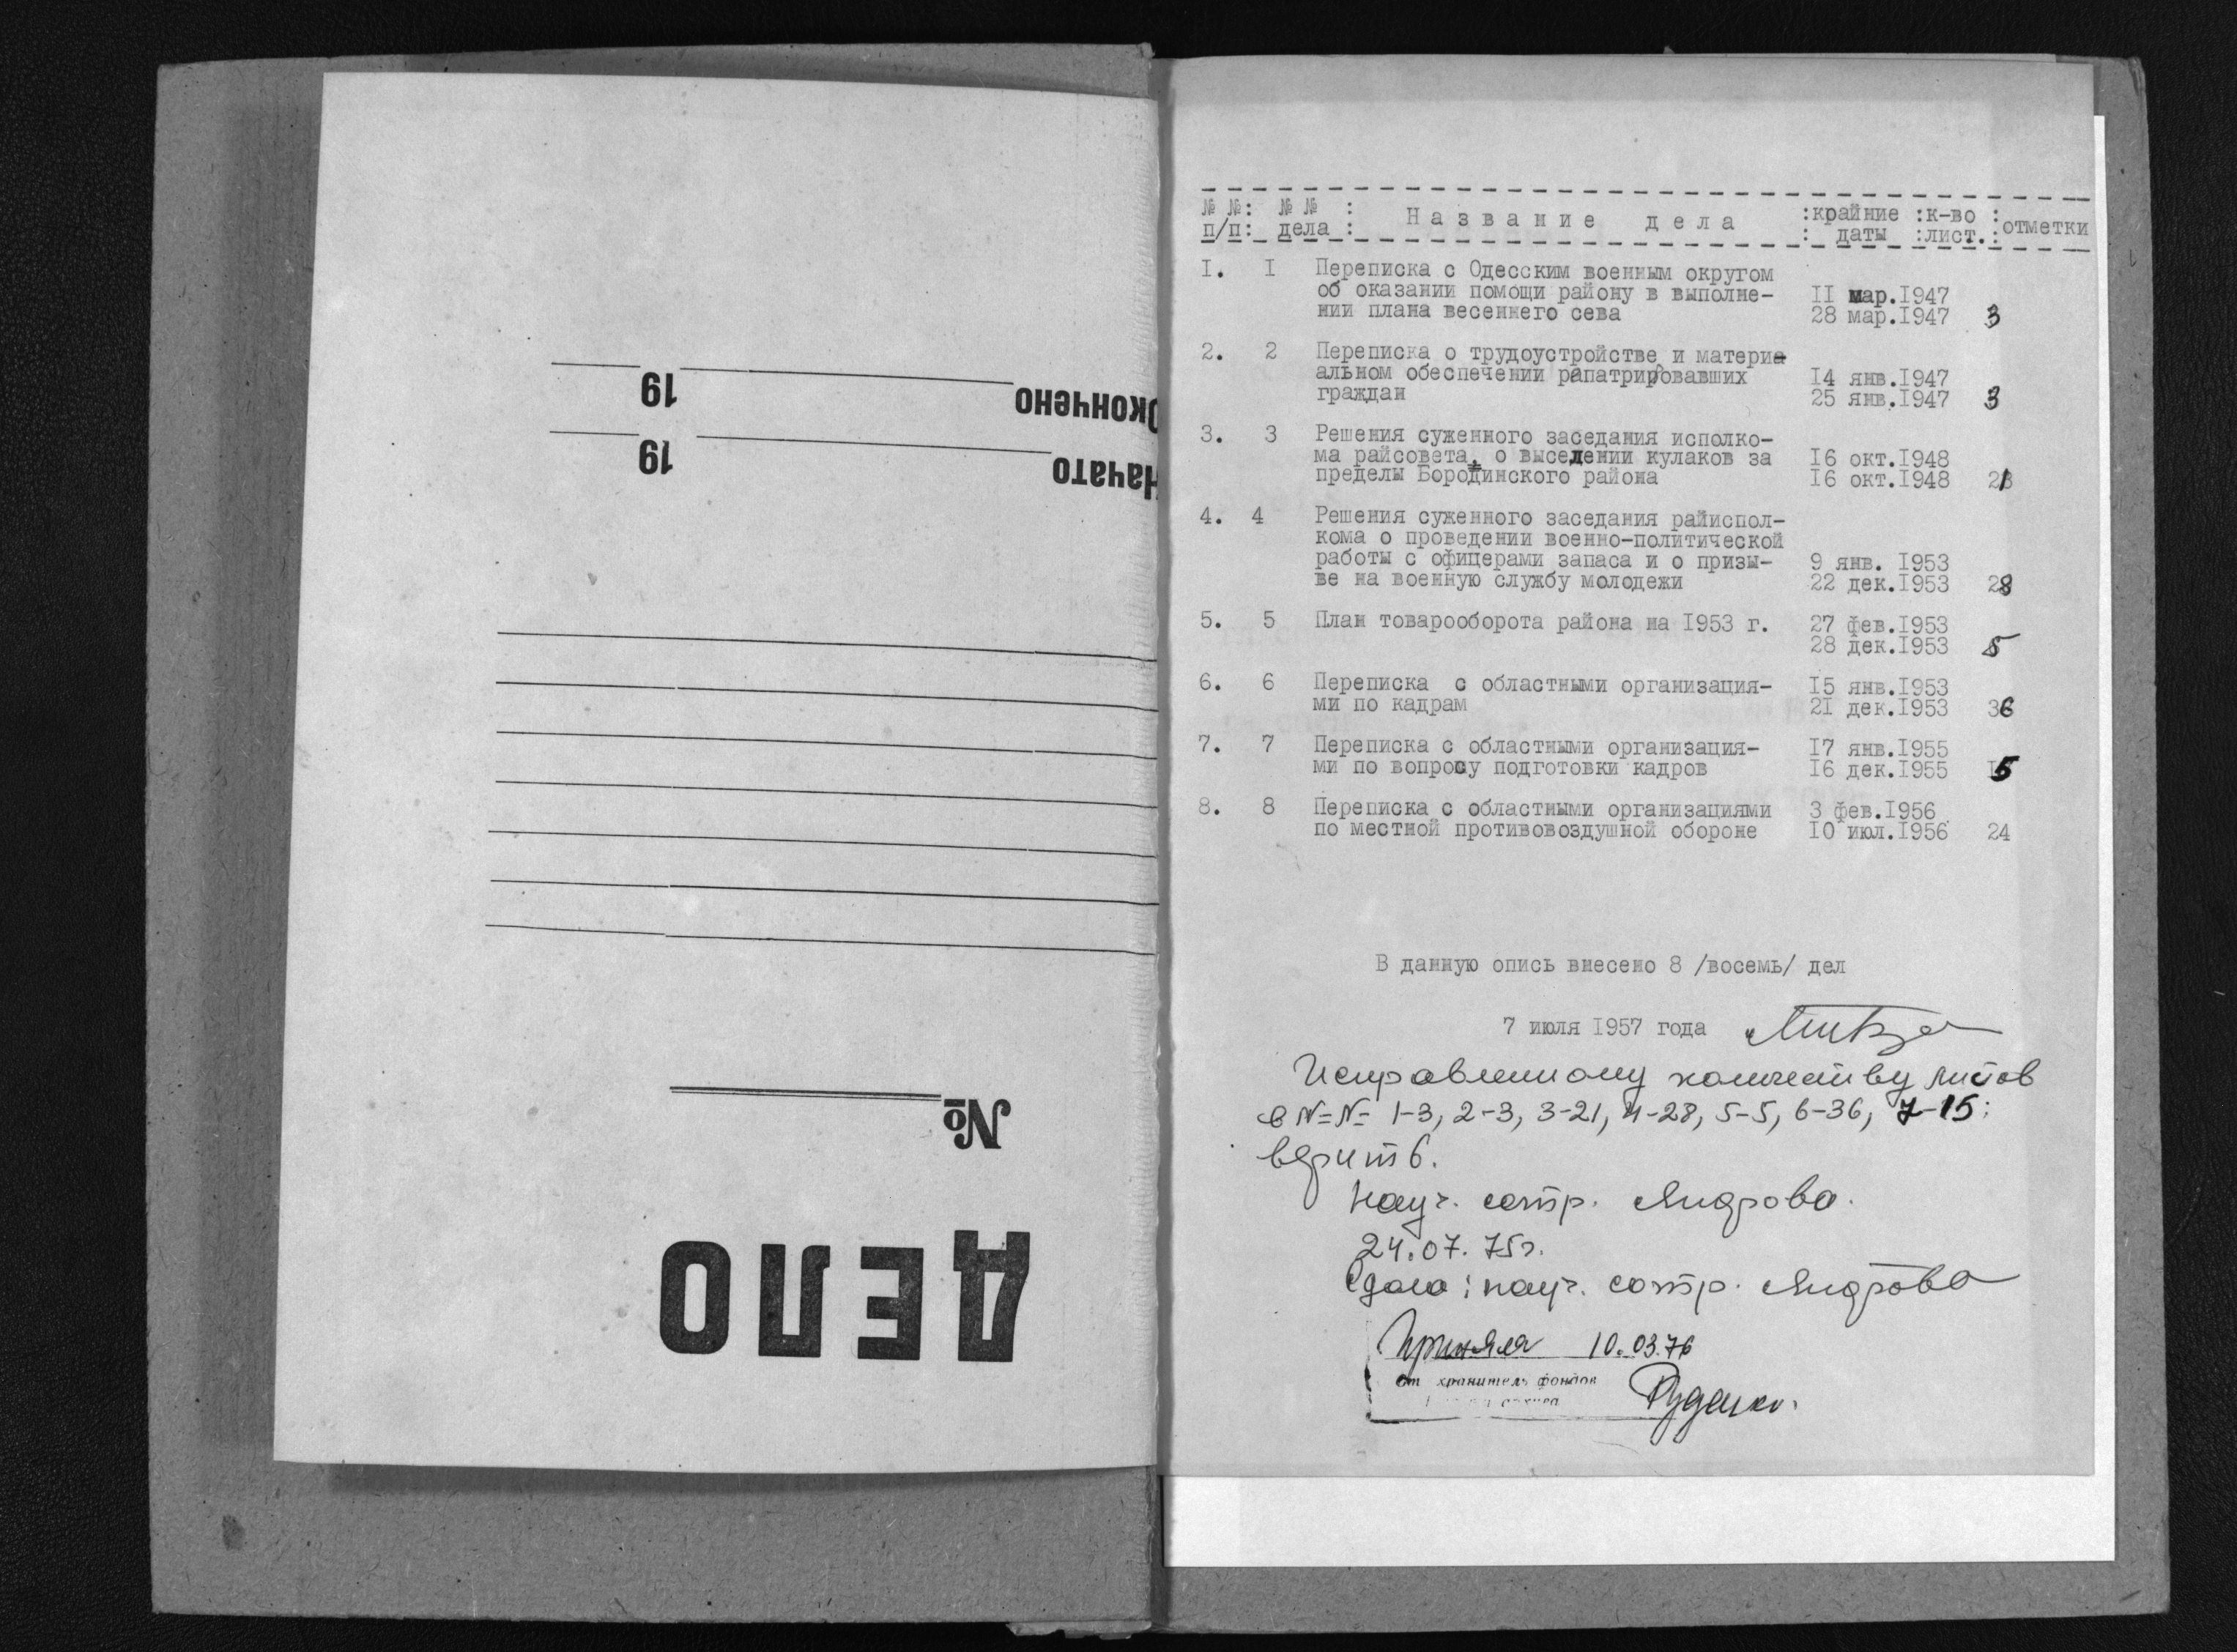 Окончено 19
Начато 19
№
ДЕЛО
№ №: № № : Название дела :крайние :к-во :отметки
п/п: дела : : даты :лист.:
1. 1 Переписка с Одесским военным округом
об оказании помощи району в выполне- 11 мар.1947
нии плана весеннего сева 28 мар.1947 3
2. 2 Переписка о трудоустройстве и матери
альном обеспечении рапатриировавших 14 янв.1947
граждан 25 янв.1947 3
3. 3 Решения суженного заседания исполко-
ма райсовета, о выселении кулаков за 16 окт.1948
пределы Бородинского района 16 окт.1948 21
4. 4 Решения суженного заседания райиспол-
кома о проведении военно-политической
работы с офицерами запаса и о призы- 9 янв. 1953
ве на военную службу молодежи 22 дек.1953 28
5. 5 План товарооборота района на 1953 г. 27 фев.1953
28 дек.1953 5
6. 6 Переписка с областными организация- 15 янв.1953
ми по кадрам 21 дек.1953 36
7. 7 Переписка с областными организация- 17 янв.1955
ми по вопросу подготовки кадров 16 дек.1955 15
8. 8 Переписка с областными организациями 3 фев.1956
по местной противовоздушной обороне 10 июл.1956 24
В данную опись внесено 8 /восемь/ дел
7 июля 1957 года
Исправленному количеству листов
в №№ 1-3, 2-3, 3-21, 4-28, 5-5, 6-36, 7-15;
верить.
науч. сотр. Андрова.
24.07.75г.
Сдала: науч. сотр. Андрова
Приняла 10.03.76
ст хранитель фондов
архива Руденко.